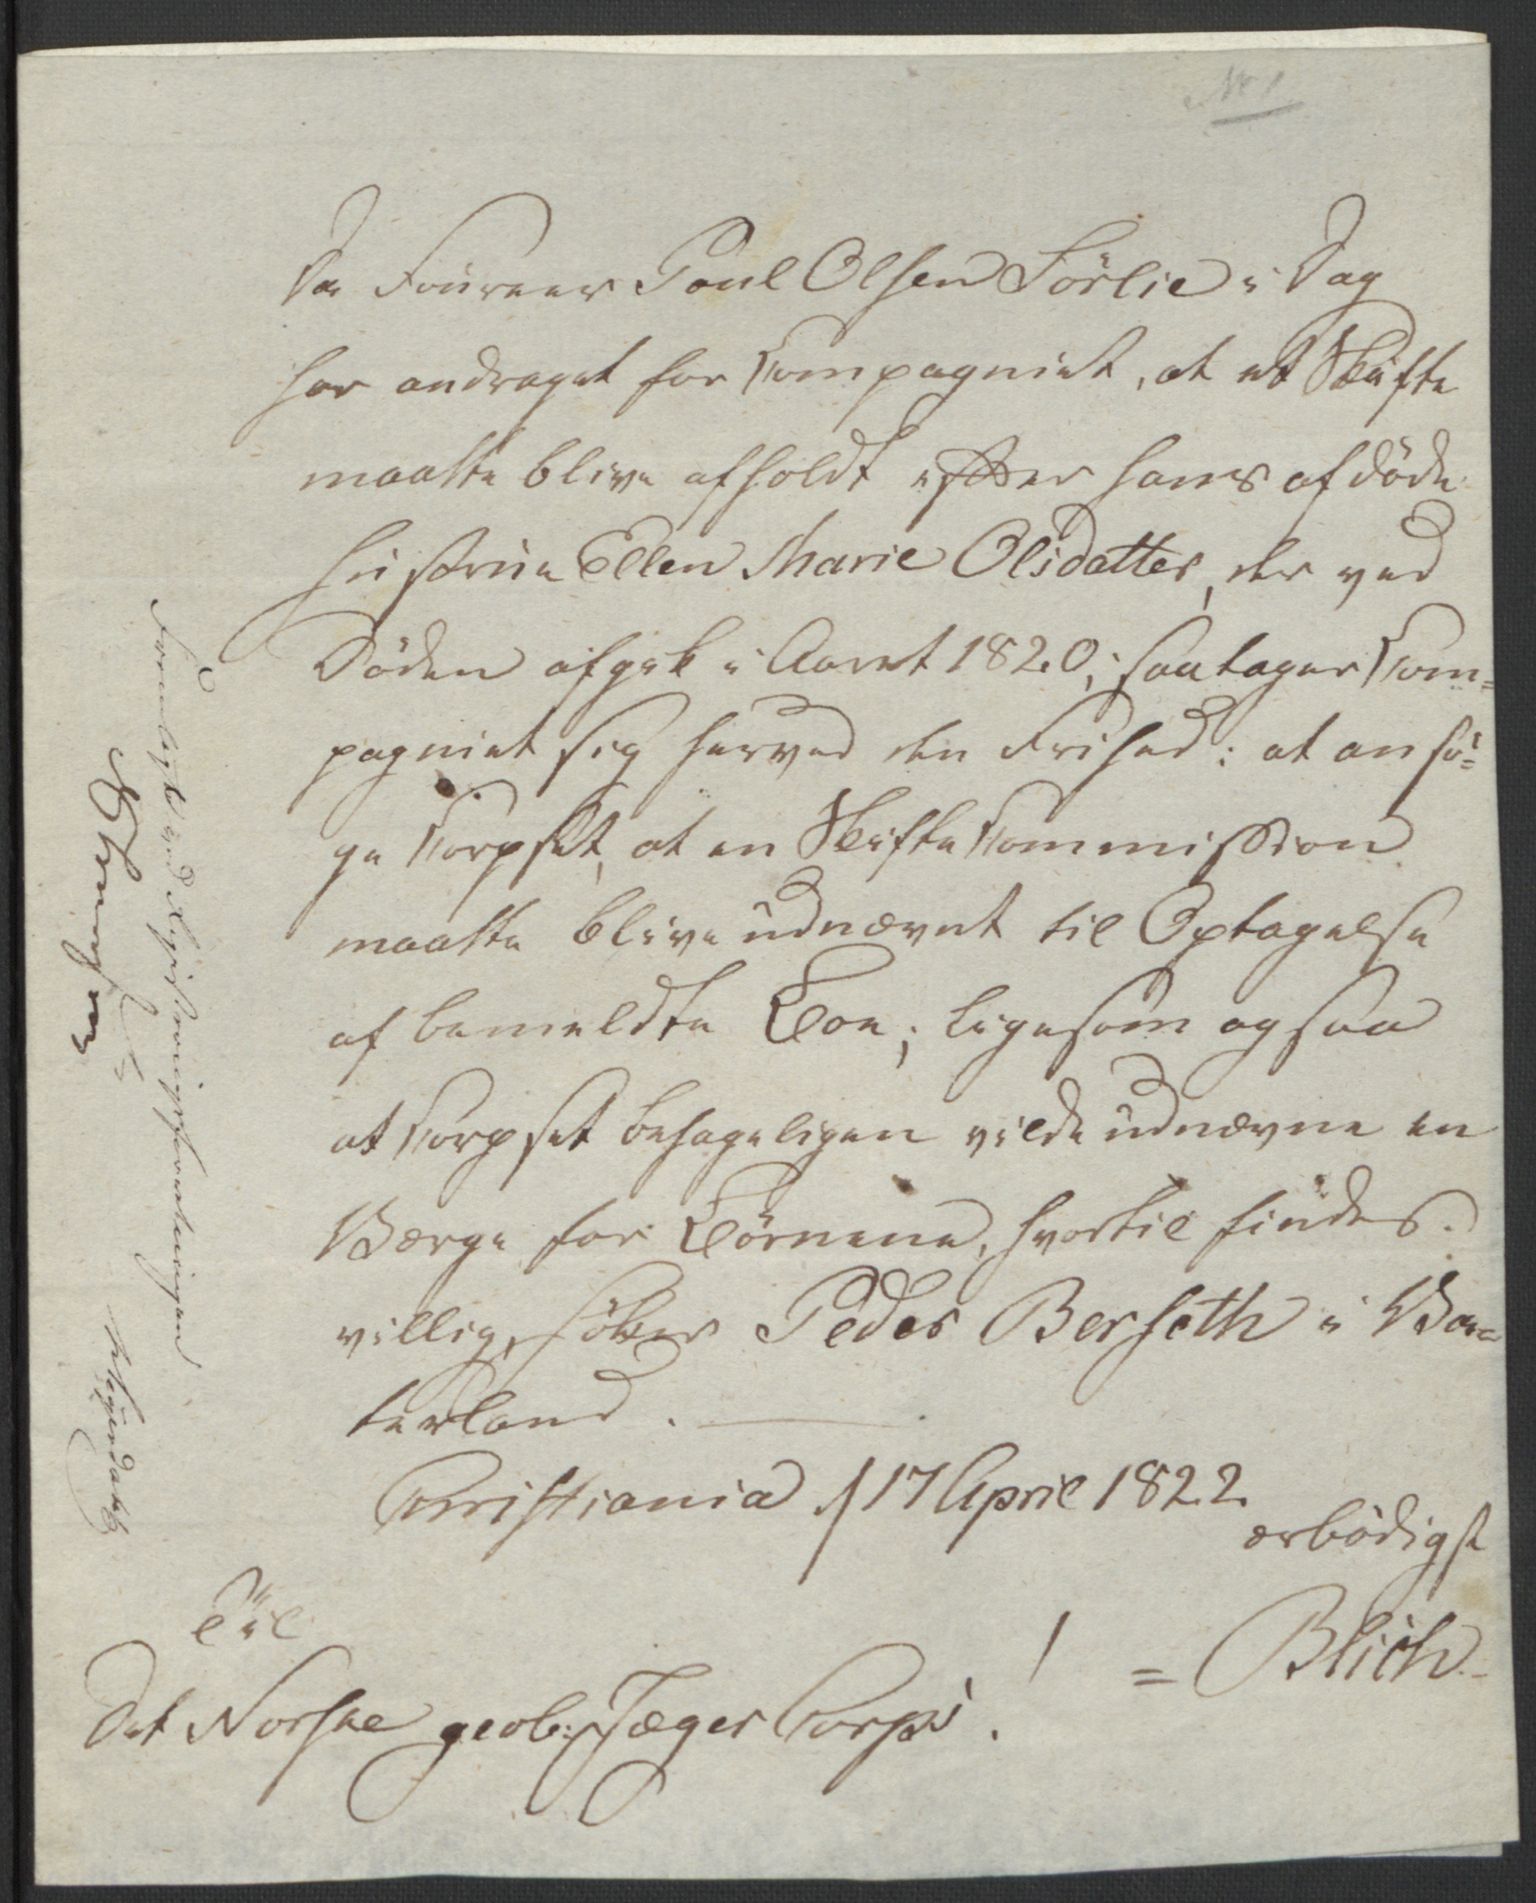 No 1
Da Foureer Poul Olsen Sörlie i Dag
har andraget for Kompagniet, at et Skifte
maatte blive afholdt efter hans afdöde
Hustrue Ellen Marie Olsdatter, der ved
Döden afgik i Aaret 1820; saa tager Kom-
pagniet sig herved den Frihed: at ansö-
ge Korpset, at en Skifte Kommission
maatte blive udnævnt til Optagelse
af bemeldte Boe; ligesom ogsaa
at Korpset behageligen vilde udnævne en
Værge for Börnene, hvortil findes
villig, Peder Berseth i Va-
terland.
Christiania d 17 April 1822
ærbödigst
Blich
Til
Det Norske geob: Jæger Corps!
Fremlagt ved Registreringsforretningen